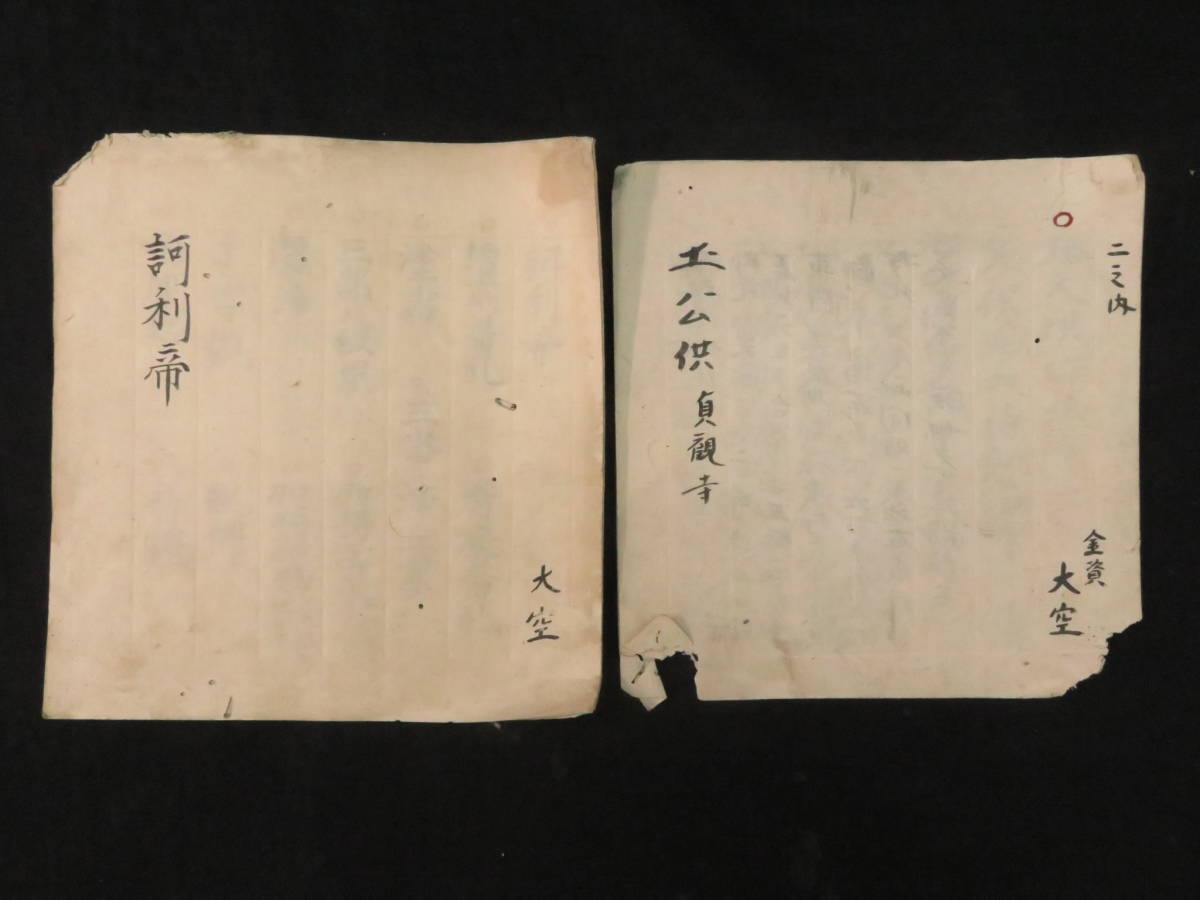 訶利帝
大空
二之内
金資
大空
土公供 貞観寺